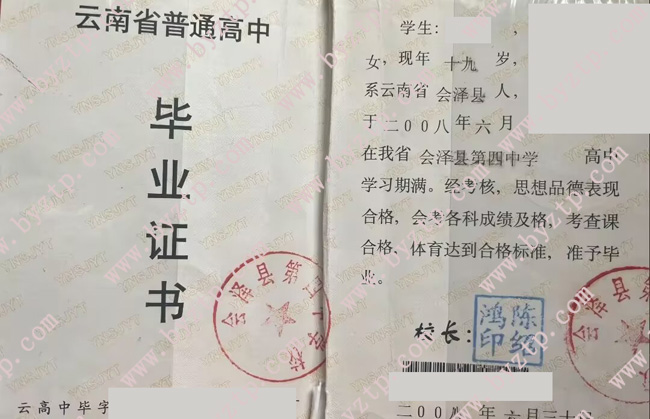 云南省普通高中
毕
业
证
书
云高中毕字
学生: ,
女,现年 十九 岁,
系云南省 会泽县 人,
于 二00八 年 六 月
在我省 会泽县第四中学 高中
学习期满。经考核,思想品德表现
合格,会考各科成绩及格,考查课
合格,体育达到合格标准,准予毕
业。
校长:
陈绍鸿印
二00八年 六月三十
会泽县第
会泽县第
www.byztp.com